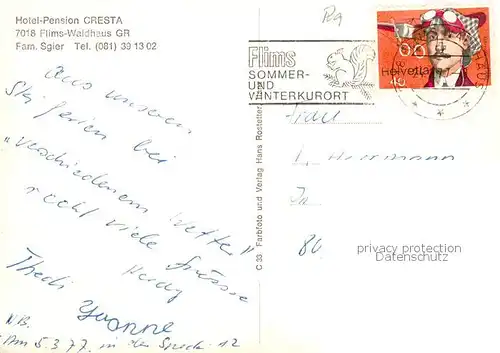 Hotel-Pension CRESTA
7018 Flims-Waldhaus GR
Fam. Sgier Tel. (081) 39 13 02
Flims
SOMMER-
UND
WINTERKURORT
Helvetia
aus unseren
Skiferien bei
"verschiedenem Wetter"
recht viele Grüsse
Thedi
Yvonne
N.B.
Am 5.3.77 in der 12
C 33 Farbfoto und Verlag Hans Rostetter,
Frau
Herrmann
privacy protection
Datenschutz